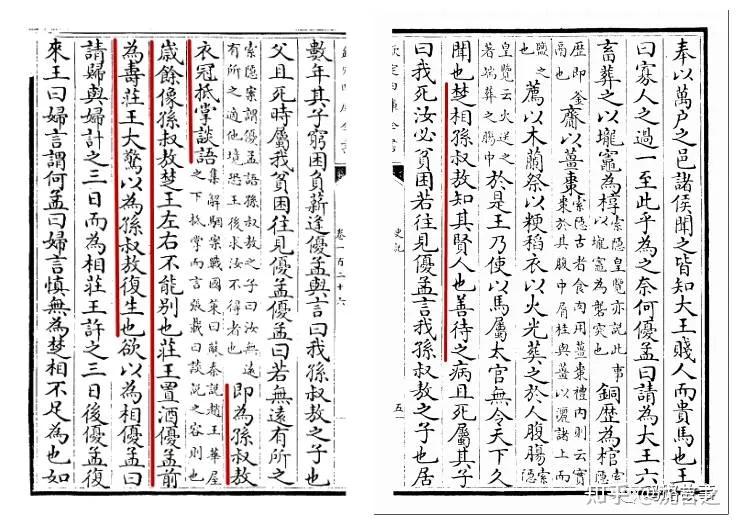 奉以萬户之邑諸侯聞之皆知大王賤人而貴馬也王
曰寡人之過一至此乎為之奈何優孟曰請為大王六
畜葬之以壠竈為椁索隱皇覽亦説此事以壠竈為礱突也銅歴為棺索隱
歴即釜鬲也齎以薑棗索隱古者食肉用薑棗禮内則云實棗於其腹中屑桂與薑以灑諸上而
鹽之也薦以木蘭祭以粳稻衣以火光葬之於人腹腸索隱
皇覽云火送之著端葬之腸中於是王乃使以馬屬太官無令天下久
聞也楚相孫叔敖知其賢人也善待之病且死屬其子
曰我死汝必貧困若往見優孟言我孫叔敖之子也居
史記
卷一百二十六
數年其子窮困負薪逢優孟與言曰我孫叔敖之子也
父且死時屬我貧困往見優孟優孟曰若無逺有所之
索隱案謂優孟語孫叔敖之子曰汝無逺有所之適他境恐王後求汝不得者也即為孫叔敖
衣冠抵掌談語集解駰案戰國策曰蘇秦説趙王華屋之下抵掌而言張載曰談説之容則也
歳餘像孫叔敖楚王左右不能别也莊王置酒優孟前
為壽莊王大驚以為孫叔敖復生也欲以為相優孟曰
請歸與婦計之三日而為相莊王許之三日後優孟復
來王曰婦言謂何孟曰婦言慎無為楚相不足為也如
知乎